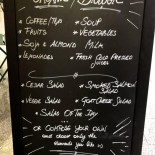 * COFFEE/TEA * SOUP
* FRUITS * VEGETABLES
* SOJA & ALMOND MILK
* LEMONADES * FRESH COLD PRESSED JUICES
* CESAR SALAD * SMOKED SALMON SALAD
* VEGGIE SALAD * GOAT CHEESE SALAD
* SALAD OF THE DAY
OR COMPOSE YOUR OWN!
and clear only the